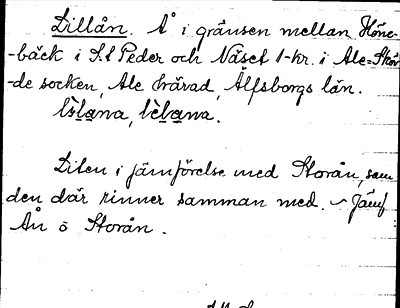 Lillån. Å i gränsen mellan Höne-
-bäck i S:t Peder och Näset 1-kr. i Ale-Sköv
-de socken, Ale härad, Älfsborgs län.
Liten i jämförelse med Storån, som
den där rinner samman med. ~ Jämf
Ån o Storån.